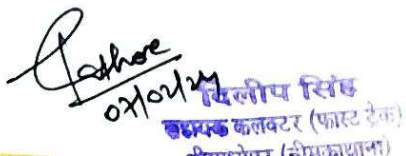 Rathore
07/02/24
दिलीप सिंह
सहायक कलक्टर (फास्ट ट्रेक)
(नीमकाथाना)